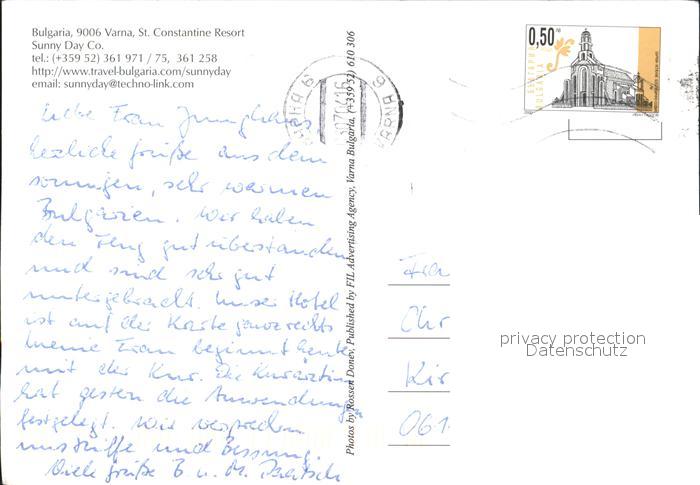 Bulgaria, 9006 Varna, St. Constantine Resort
Sunny Day Co.
tel.: (+359 52) 361 971 / 75, 361 258
http://www.travel-bulgaria.com/sunnyday
email: sunnyday@techno-link.com
Liebe Frau Junghans
herzliche Grüße aus dem
sonnigen, sehr warmen
Bulgarien. Wir haben
den Flug gut überstanden
und sind sehr gut
untergebracht. Unser Hotel
ist auf der Karte ganz rechts
Meine Frau beginnt heute
mit der Kur. Die Kurärztin
hat gestern die Anwendungen
festgelegt. Wir versprechen
uns Hilfe und Besserung.
Viele Grüße B u. M.
Photos by Rossen Donev, Published by FIL Advertising Agency, Varna Bulgaria, (+359 52) 610 306
ВАРНА 9
9 VARNA
0,50
БЪЛГАРИЯ
BULGARIA
Frau
Chr
Kir
061
privacy protection
Datenschutz